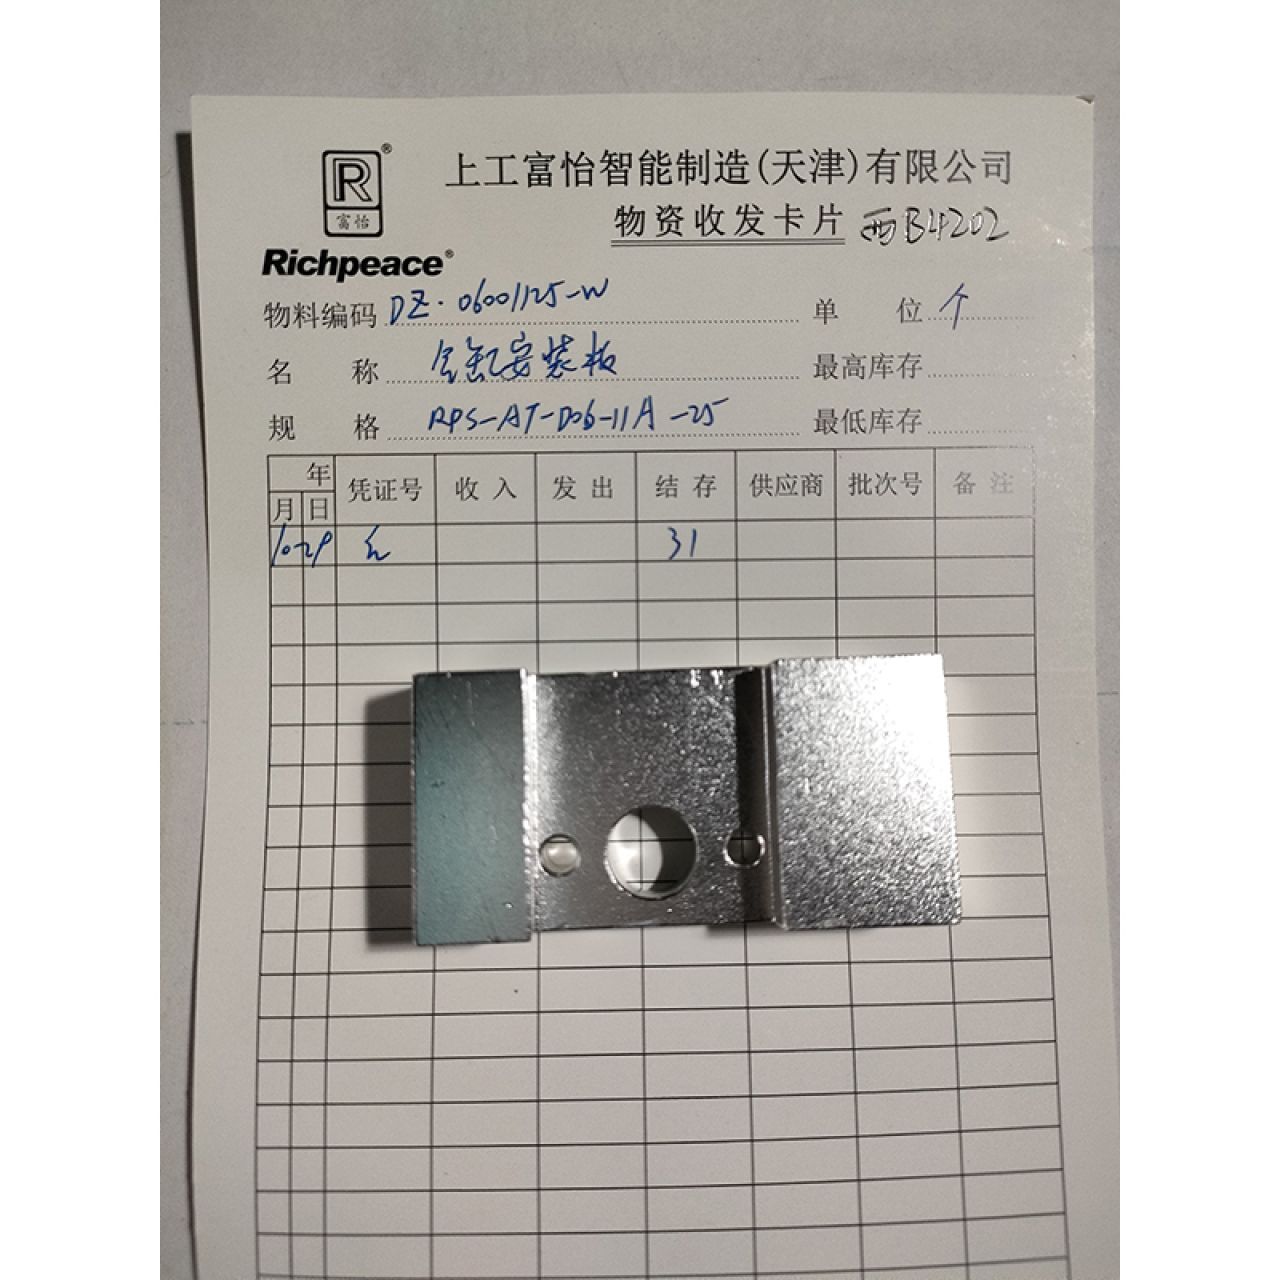 R®
富怡
Richpeace®
上工富怡智能制造(天津)有限公司
物资收发卡片 西B4202
物料编码 DZ·06001125-W 单位 个
名称 气缸安装板 最高库存
规格 RPS-AT-D06-11A-25 最低库存
年
月 日 凭证号 收入 发出 结存 供应商 批次号 备注
10-29 31